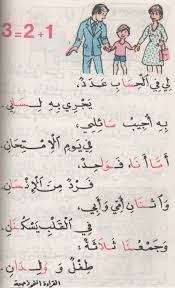 3=2+1
لِي فِي الْحِسَابِ عَدَدُ،
يَجْرِي بِهِ لِسَانِي
بِهِ أُجِيبُ سَائِلِي،
فِي يَوْمِ الْاِمْتِحَانِ
أَمَّا أَنَا فَوَاحِدُ،
فَرْدٌ مِنَ الْإِنْسَانِ
وَاثْنَانِ أُمِّي وَأَبِي،
فِي الْقَلْبِ يَسْكُنَانِ
وَجَمْعُنَا ثَلَاثَةٌ:
طِفْلٌ وَ وَالِدَانِ
القراءة النموذجية